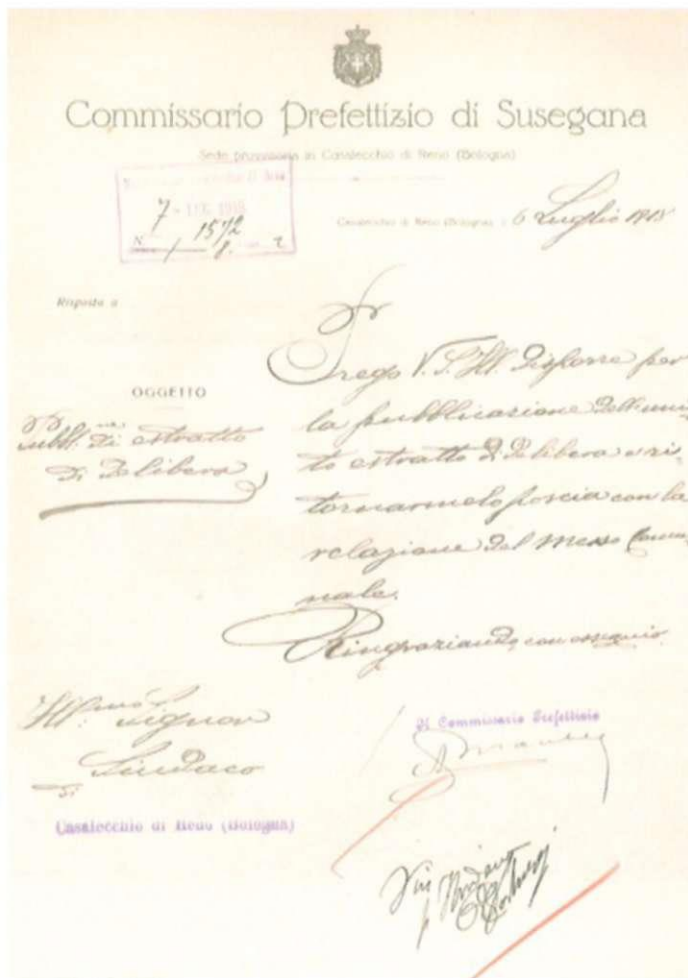 Commissario Prefettizio di Susegana
Sede provvisoria in Casalecchio di Reno (Bologna)
7 - LUG. 1918
N. 1572
Casalecchio di Reno (Bologna), 6 Luglio 1918
Risposta a
OGGETTO
Pubbl.ne di estratto
di Delibera
Prego V. S. Ill. disporre per
la pubblicazione dell'uni
to estratto di Delibera e ri
tornarmelo poscia con la
relazione del Messo Comu
nale.
Ringraziando, con ossequio.
Ill.mo Signor
Sindaco
di
Casalecchio di Reno (Bologna)
Il Commissario Prefettizio